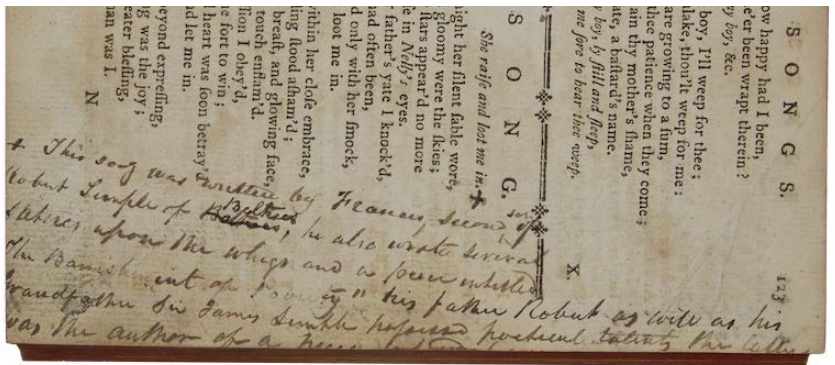 SONGS. 123
ow happy had I been,
e'er been wrapt therein?
y boy, &c.
boy, I'll weep for thee;
lake, thou'lt weep for me:
are growing to a ſum,
thee patience when they come;
ain thy mother's ſhame,
a baſtard's name.
boy, ly ſtill and ſleep,
me ſore to hear thee weep. X.
SONG.
She raiſe and loot me in. +
ight her ſilent ſable wore,
gloomy were the ſkies;
ſtars appear'd no more
e in Nelly's eyes.
father's yate I knock'd,
had often been,
d only with her ſmock,
loot me in.
ithin her cloſe embrace,
ling ſtood aſham'd;
breaſt, and glowing face,
touch enflam'd.
ſion I obey'd,
e fort to win;
heart was ſoon betray'd
nd let me in.
eyond expreſſing,
g was the joy;
eater bleſſing,
man was I.
N
+ This song was written by Francis, second son of
Robert Semple of Beltrees, he also wrote several
Satires upon the whigs and a piece entitled
The Banishment of Poverty" his father Robert as well as his
Grandfather Sir James Semple poetical talents the
was the author of a